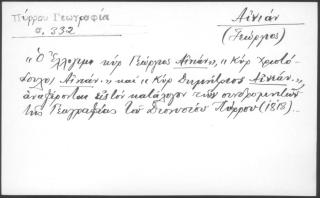 Πύρρου Γεωγραφία
σ. 332
Αἰνιάν
(Γεώργιος)
"Ὁ Ἐλλογιμ. κύρ Γεώργιος Αἰνιάν", "Κύρ Χριστό-
δουλος Αἰνιάν." καὶ "Κύρ Δημήτριος Αἰνιάν.",
ἀναφέρονται εἰς τὸν κατάλογον τῶν συνδρομητῶν
τῆς Γεωγραφίας τοῦ Διονυσίου Πύρρου (1818)...